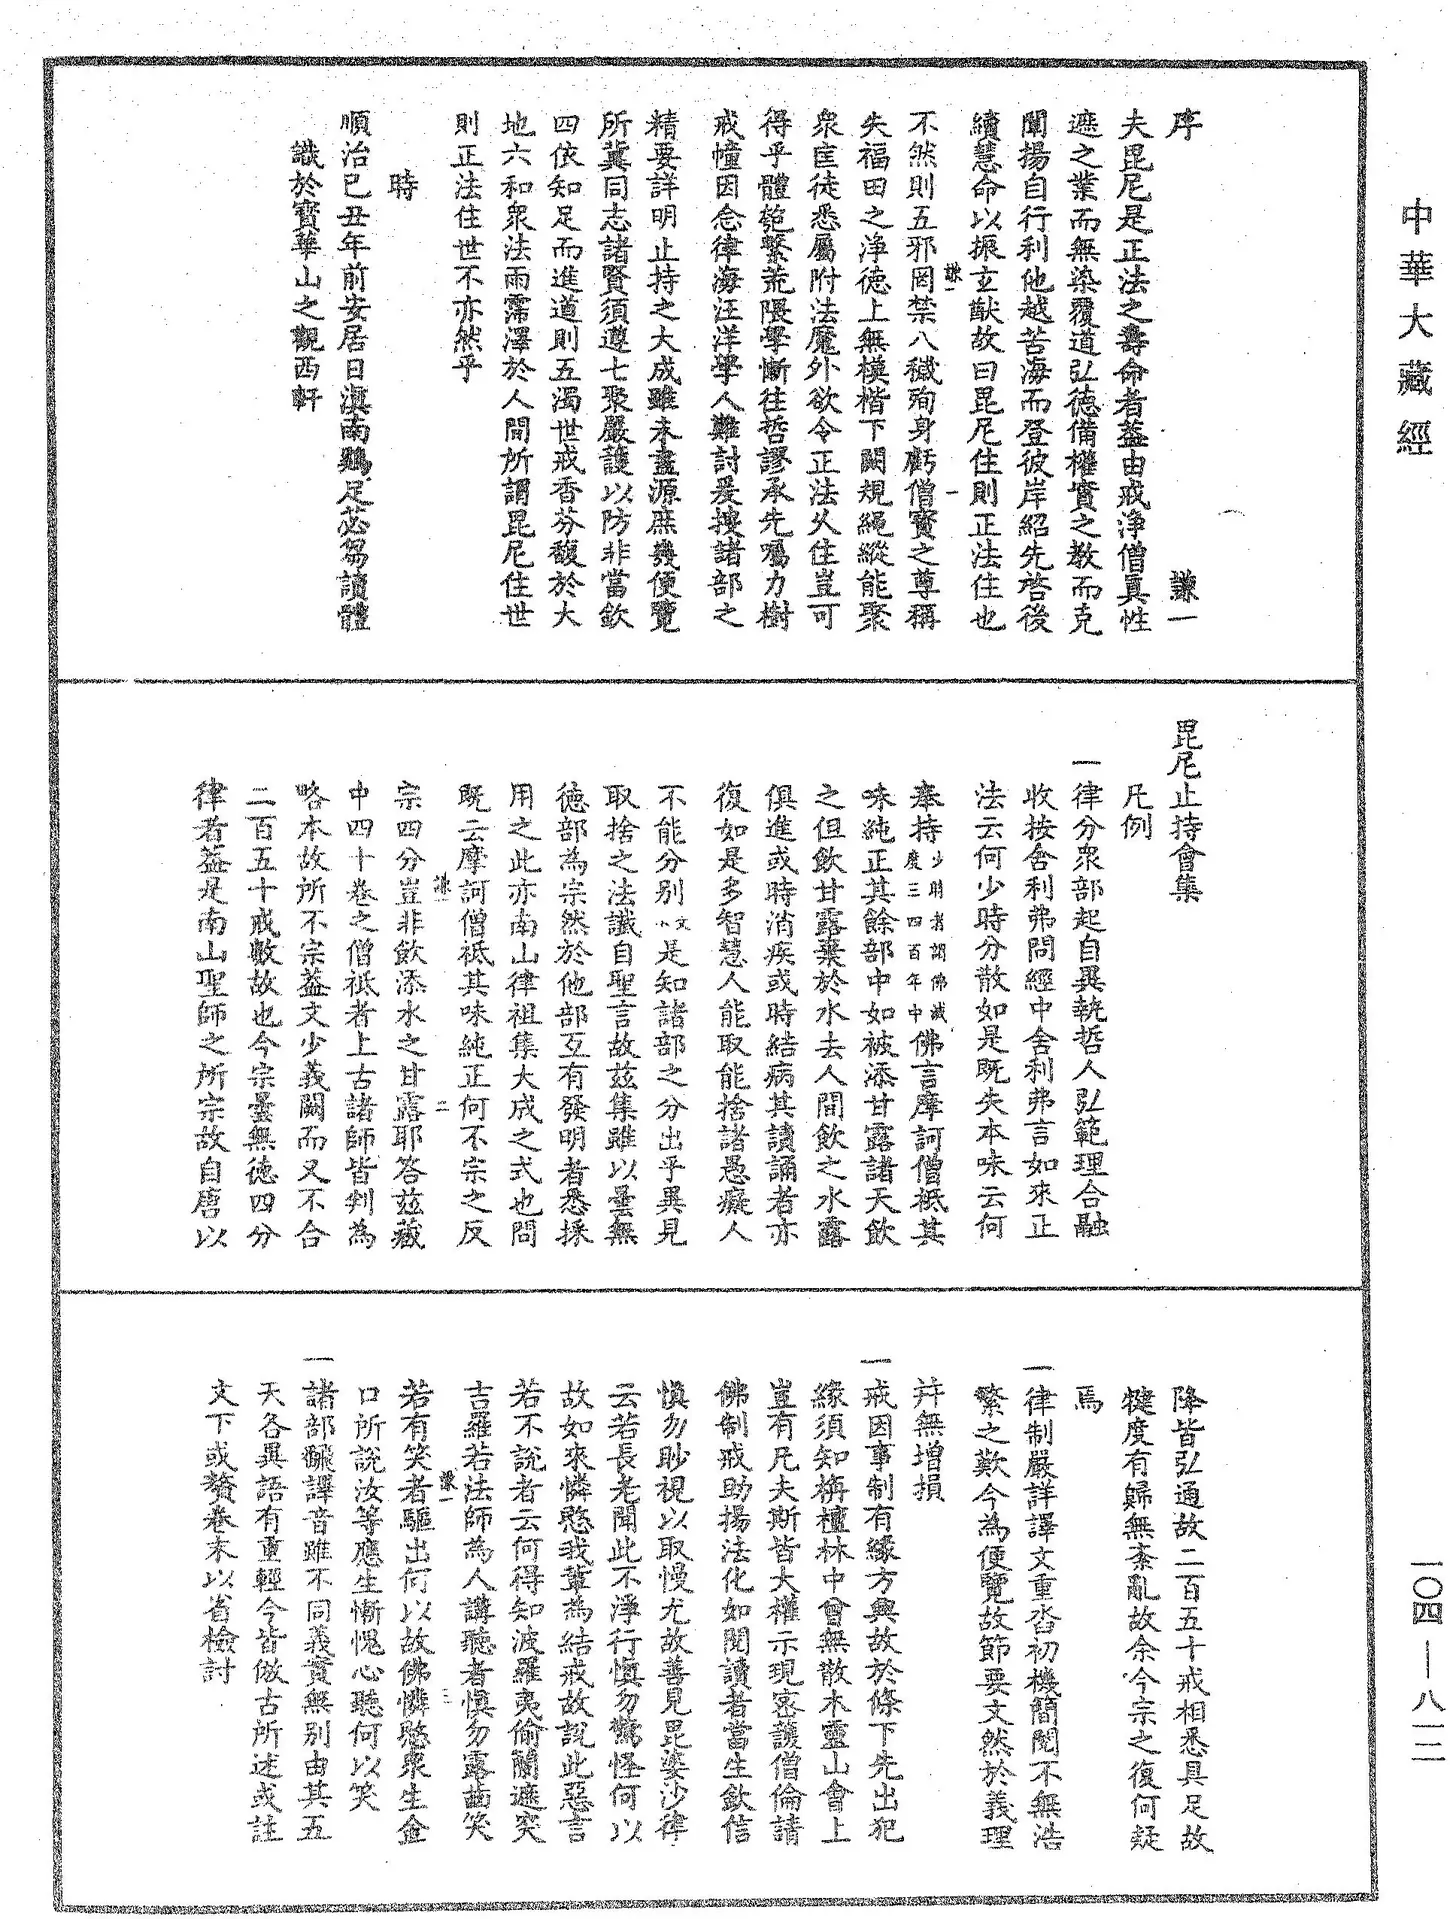 中華大藏經
序　謙一
夫毘尼是正法之壽命者葢由戒淨僧真性
遮之業而無染覆道弘德備權實之教而克
闡揚自行利他越苦海而登彼岸紹先啓後
續慧命以振玄猷故曰毘尼住則正法住也
謙一　一
不然則五邪罔禁八穢殉身虧僧寳之尊稱
失福田之淨德上無模楷下闕規繩縱能聚
衆匡徒悉屬附法魔外欲令正法久住豈可
得乎體䂨繫荒隈學慚往哲謬承先囑力樹
戒幢因念律海汪洋學人難討爰摟諸部之
精要詳明止持之大成雖未盡源庶幾便覽
所冀同志諸賢須遵七聚嚴護以防非當欽
四依知足而進道則五濁世戒香芬馥於大
地六和衆法雨霈澤於人間所謂毘尼住世
則正法住世不亦然乎
時
順治己丑年前安居日滇南鷄足苾芻讀體
識於寳華山之觀西軒
毘尼止持會集
凡例
一律分衆部起自異執哲人弘範理合融
收按舍利弗問經中舍利弗言如來正
法云何少時分散如是既失本味云何
奉持少時者謂佛滅度三四百年中佛言摩訶僧祇其
味純正其餘部中如被添甘露諸天飲
之但飲甘露棄於水去人間飲之水露
俱進或時消疾或時結病其讀誦者亦
復如是多智慧人能取能捨諸愚癡人
不能分別文小是知諸部之分出乎異見
取捨之法讖自聖言故茲集雖以曇無
德部為宗然於他部互有發明者悉採
用之此亦南山律祖集大成之式也問
既云摩訶僧祇其味純正何不宗之反
謙一　二
宗四分豈非飲添水之甘露耶答茲藏
中四十卷之僧祇者上古諸師皆判為
略本故所不宗葢文少義闕而又不合
二百五十戒數故也今宗曇無德四分
律者葢是南山聖師之所宗故自唐以
降皆弘通故二百五十戒相悉具足故
犍度有歸無紊亂故余今宗之復何疑
焉
一律制嚴詳譯文重沓初機簡閱不無浩
繁之歎今為便覽故節要文然於義理
幷無增損
一戒因事制有緣方興故於條下先出犯
緣須知栴檀林中曾無散木靈山會上
豈有凡夫斯皆大權示現密護僧倫請
佛制戒助揚法化如閱讀者當生欽信
慎勿眇視以取慢尤故善見毘婆沙律
云若長老聞此不淨行慎勿驚怪何以
故如來憐愍我輩為結戒故說此惡言
若不說者云何得知波羅夷偷蘭遮突
吉羅若法師為人講聽者慎勿露齒笑
謙一　三
若有笑者驅出何以故佛憐愍衆生金
口所說汝等應生慚愧心聽何以笑
一諸部飜譯音雖不同義實無別由其五
天各異語有重輕今皆倣古所述或註
文下或贅卷末以省檢討
一〇四—八一二